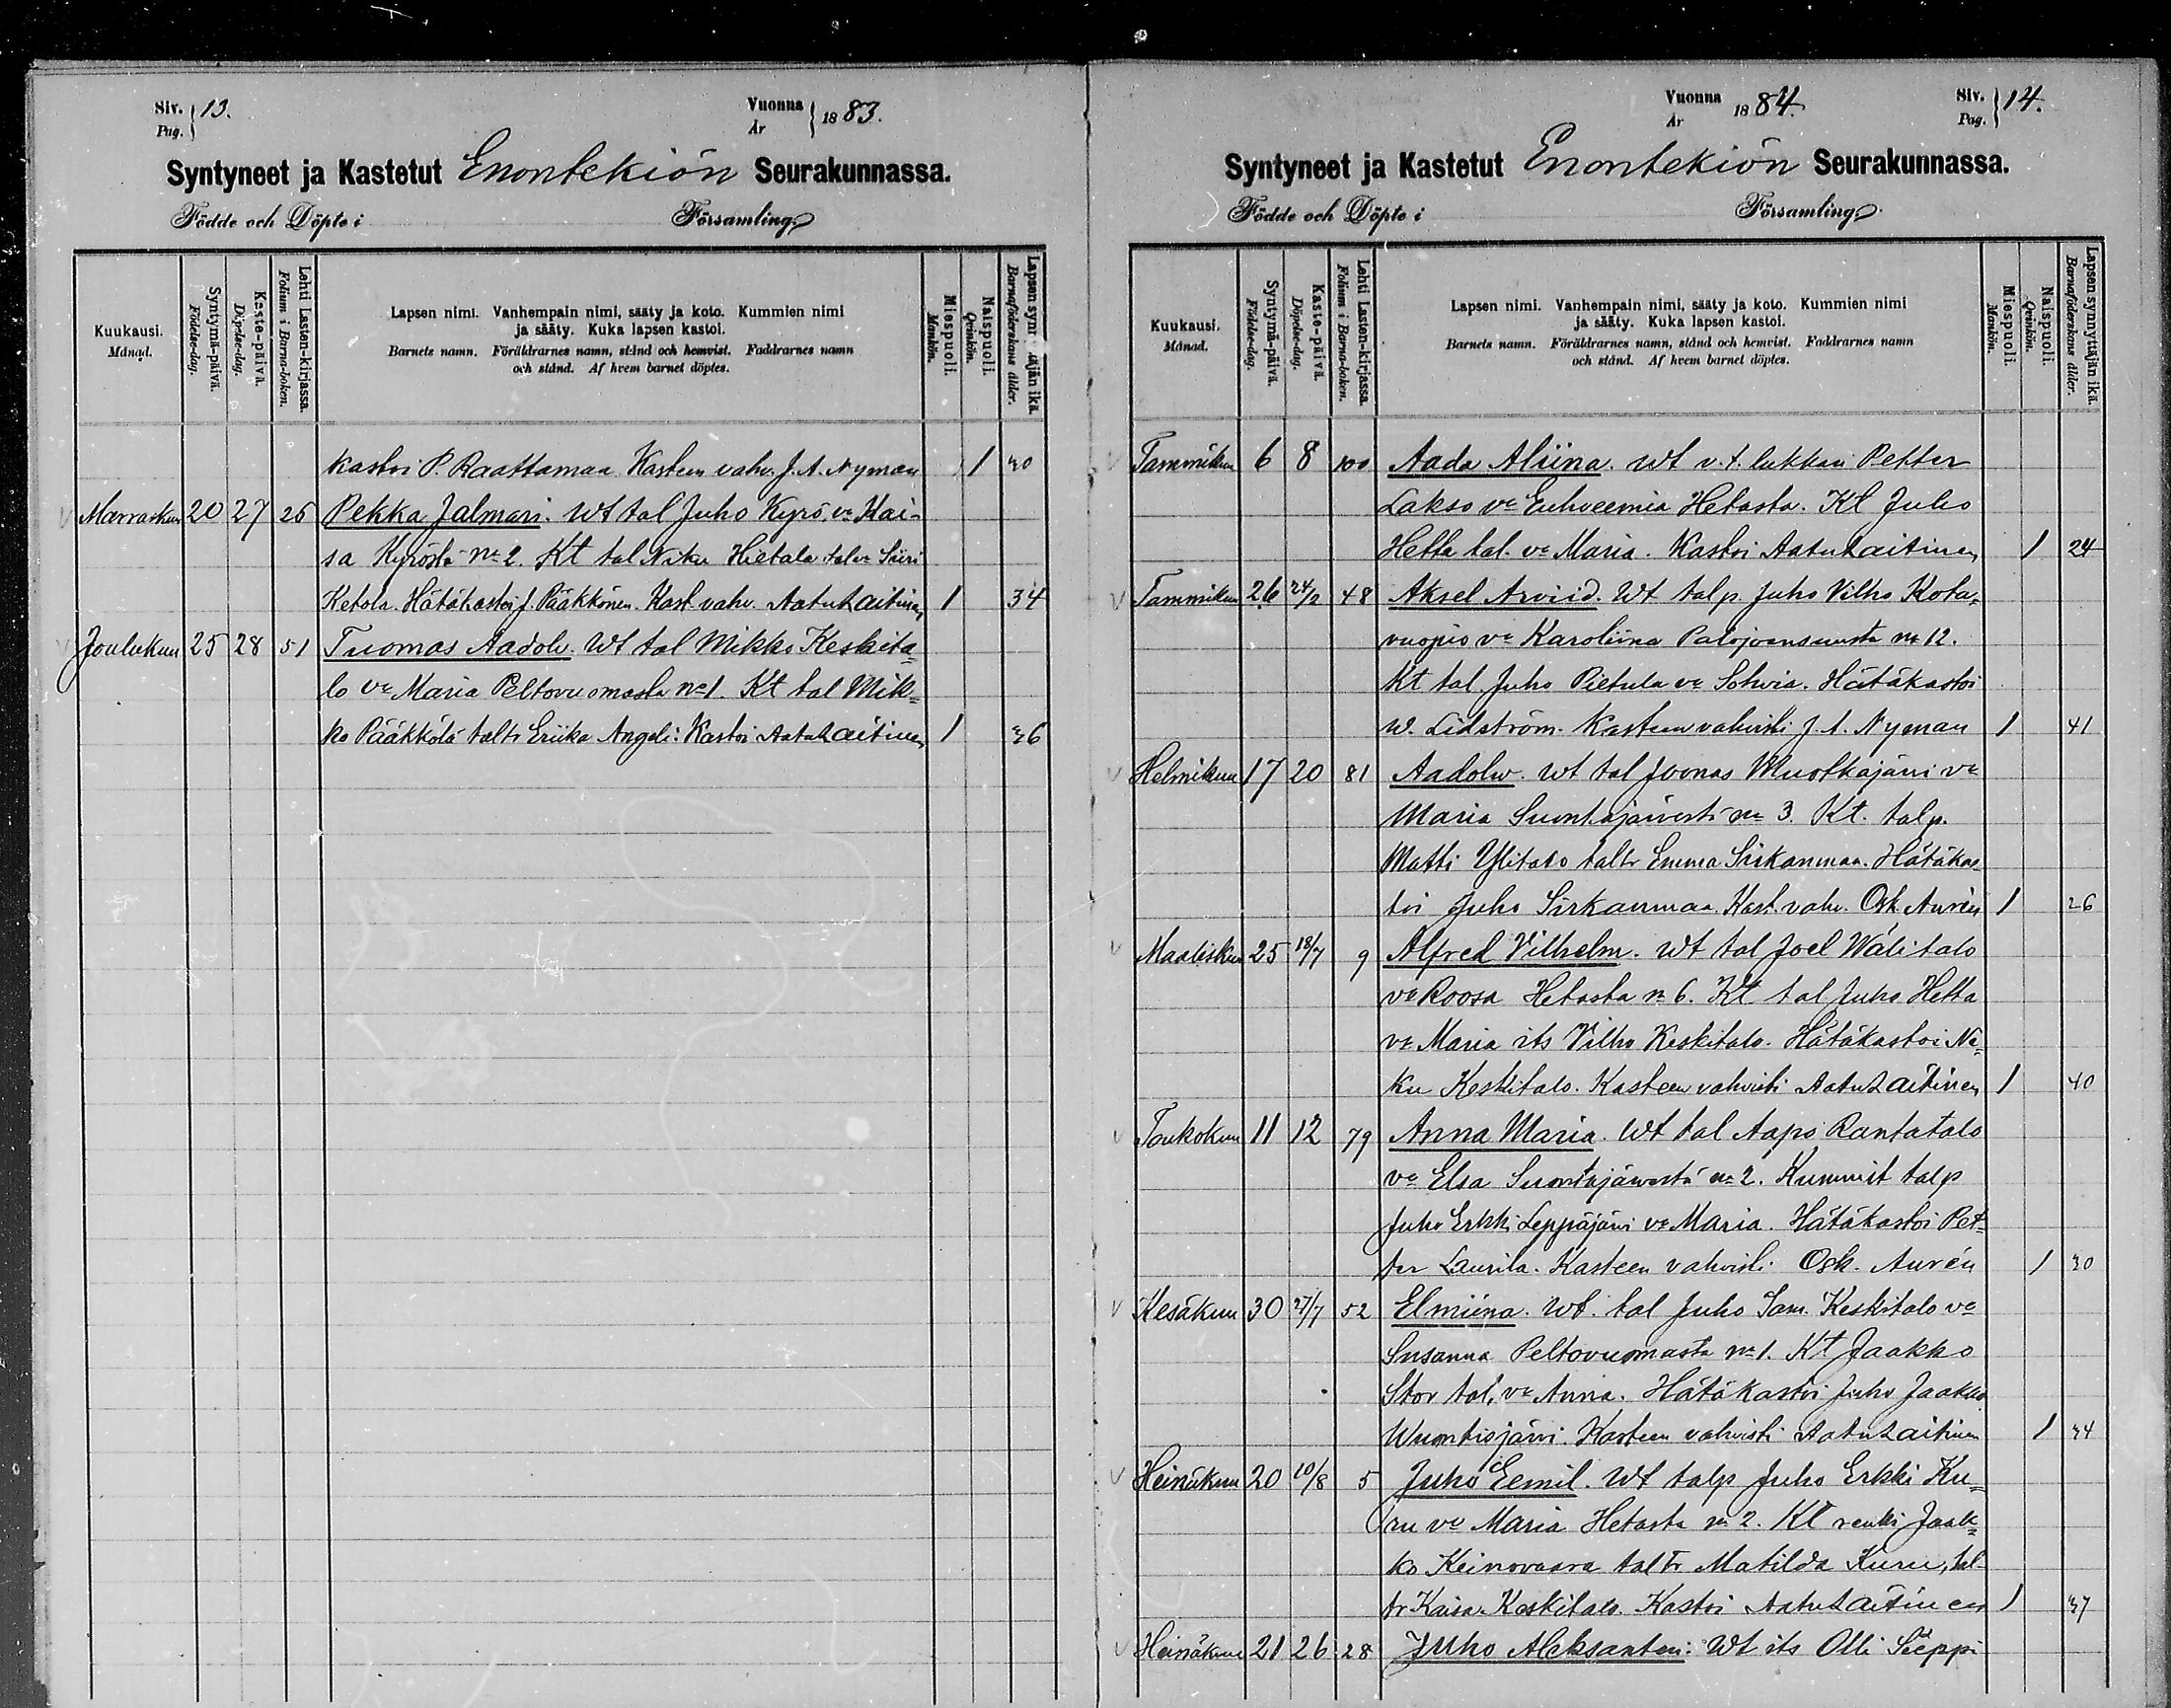 Siv. 13.
Pag.
Vuonna 1883.
År
Syntyneet ja Kastetut Enontekiön Seurakunnassa.
Födde och Döpte i Församling.
Kuukausi. Månad.
Syntymä-päivä. Födelse-dag.
Kaste-päivä. Döpelse-dag.
Lehti Lasten-kirjassa. Folium i Barna-boken.
Lapsen nimi. Vanhempain nimi, sääty ja koto. Kummien nimi
ja sääty. Kuka lapsen kastoi.
Barnets namn. Föräldrarnes namn, stånd och hemvist. Faddrarnes namn
och stånd. Af hvem barnet döptes.
Miespuoli. Mankön.
Naispuoli. Qvinkön.
Lapsen synnyttäjän ikä. Barnaföderskans ålder.
kastoi P. Raattamaa. Kasteen vahv. J. A. Nyman 1 30
Marraskuu 20 27 26 Pekka Jalmari. Wt tal Juho Kyrö, vo Kai-
sa Kyröstä No 2. Kt tal Niku Hietala Siiri
Ketola. Hätäkastoi J. Pääkkönen. Kast. vahv. Aatu Laitinen 1 34
Joulukuu 25 28 51 Tuomas Aadolv. Wt tal Mikko Keskita=
lo vo Maria Peltovuomasta No 1. Kt tal Mik=
ko Pääkkölä taltr Eriika Angeli: Kastoi Aatu Laitinen 1 36
Vuonna 1884.
År
Siv. 14.
Pag.
Syntyneet ja Kastetut Enontekiön Seurakunnassa.
Födde och Döpte i Församling.
Kuukausi. Månad.
Syntymä-päivä. Födelse-dag.
Kaste-päivä. Döpelse-dag.
Lehti Lasten-kirjassa. Folium i Barna-boken.
Lapsen nimi. Vanhempain nimi, sääty ja koto. Kummien nimi
ja sääty. Kuka lapsen kastoi.
Barnets namn. Föräldrarnes namn, stånd och hemvist. Faddrarnes namn
och stånd. Af hvem barnet döptes.
Miespuoli. Mankön.
Naispuoli. Qvinkön.
Lapsen synnyttäjän ikä. Barnaföderskans ålder.
Tammikuu 6 8 100 Aada Aliina. Wt v. t. lukkari Petter
Lakso vo Euhveemia Hetasta. Kt Juho
Hetta tal. vo Maria. Kastoi Aatu Laitinen 1 24
Tammikuu 26 24/2 48 Aksel Arviid. Wt talp. Juho Vilho Kota=
vuopio vo Karoliina Palojoensuusta No 12.
Kt tal. Juho Pietula vo Sohvia. Hätäkastoi
W. Lidström. Kasteen vahvisti J. A. Nyman 1 41
Helmikuu 17 20 81 Aadolw. Wt tal Joonas Muotkajärvi vo
Maria Suontajärvestä No 3. Kt. talp.
Matti Ylitalo taltr Emma Sirkanmaa. Hätäkas=
toi Juho Sirkanmaa. Kast. vahv. Osk. Aurén 1 26
Maaliskuu 25 18/7 9 Alfred Vilhelm. Wt tal Joel Wälitalo
vo Roosa Hetasta No 6. Kt tal Juho Hetta
vo Maria its Vilho Keskitalo. Hätäkastoi Ni=
ku Keskitalo. Kasteen vahvisti Aatu Laitinen 1 40
Toukokuu 11 12 79 Anna Maria. Wt tal Aapo Rantatalo
vo Elsa Suontajärvestä No 2. Kummit talp
Juho Erkki Leppäjärvi vo Maria. Hätäkastoi Pet=
ter Laurila. Kasteen vahvisti Osk. Aurén 1 30
Kesäkuu 30 27/7 52 Elmiina. Wt. tal Juho Sam. Keskitalo vo
Susanna Peltovuomasta No 1. Kt Jaakko
Stor tal, vo Anna. Hätäkastoi Juho Jaakko
Wuontisjärvi. Kasteen vahvisti Aatu Laitinen 1 34
Heinäkuu 20 10/8 5 Juho Eemil. Wt talp Juho Erkki Ku=
ru vo Maria Hetasta No 2. Kt renki Jaak=
ko Keinovaara taltr Matilda Kuru, tal-
tr Kaisa Keskitalo. Kastoi Aatu Laitinen 1 37
Heinäkuu 21 26 28 Juho Aleksanteri: Wt its Olli Sieppi